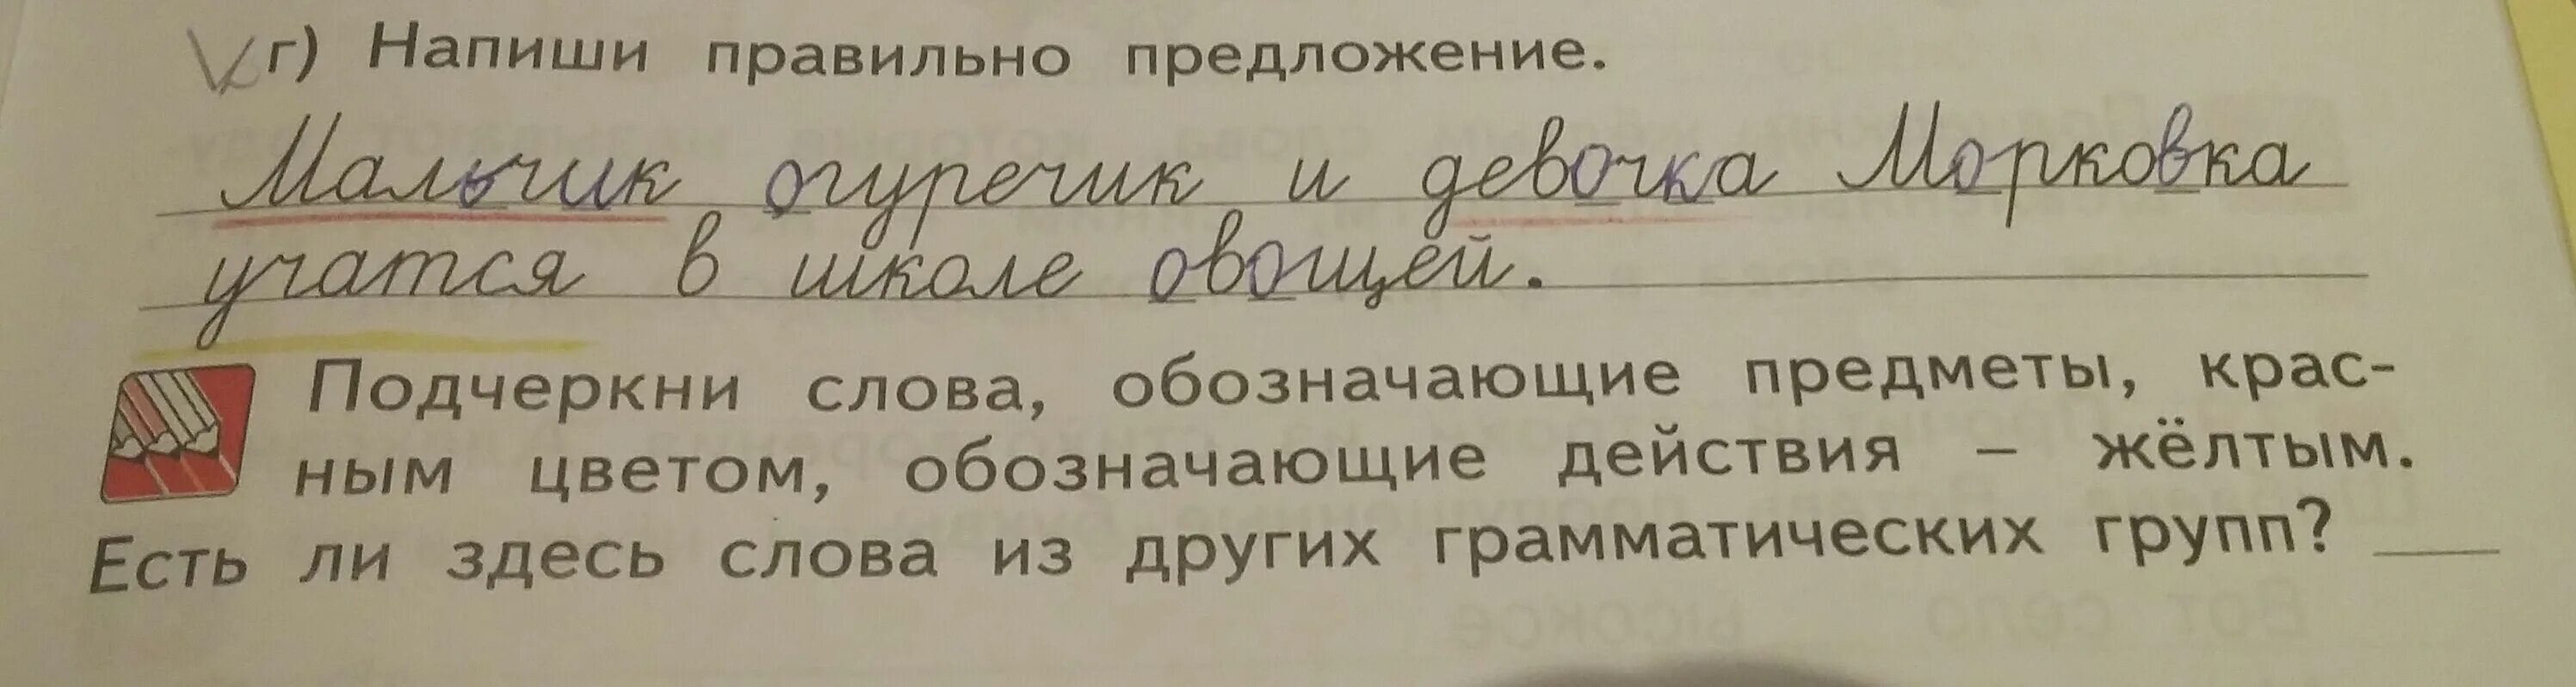 г) Напиши правильно предложение.
Мальчик огуречик и девочка Морковка
учатся в школе овощей.
Подчеркни слова, обозначающие предметы, крас-
ным цветом, обозначающие действия – жёлтым.
Есть ли здесь слова из других грамматических групп? ____